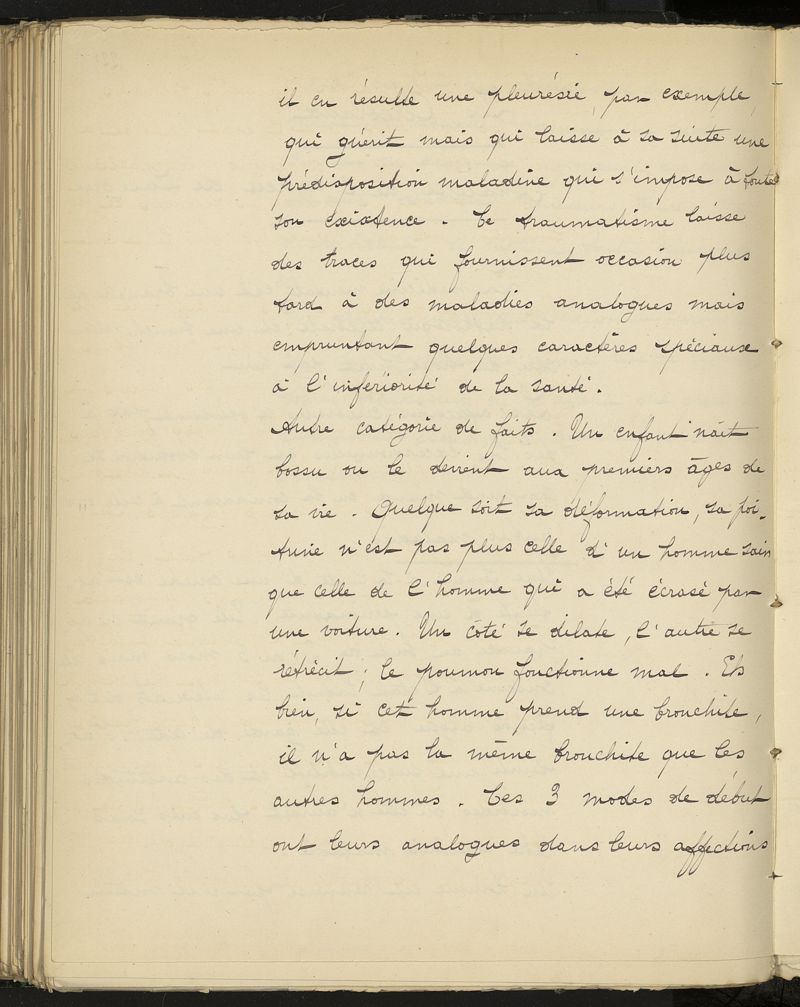 il en résulte une pleurésie, par exemple,
qui guérit mais qui laisse à sa suite une
prédisposition maladive qui s'impose à toute
son existence. Ce traumatisme laisse
des traces qui fournissent occasion plus
tard à des maladies analogues mais
empruntant quelques caractères spéciaux
à l'infériorité de la santé.
Autre catégorie de faits. Un enfant naît
bossu ou le devient aux premiers âges de
sa vie. Quelque soit sa déformation, sa poi-
trine n'est pas plus celle d'un homme sain
que celle de l'homme qui a été écrasé par
une voiture. Un coté se dilate, l'autre se
rétrécit; le poumon fonctionne mal. Eh
bien, si cet homme prend une bronchite,
il n'a pas la même bronchite que les
autres hommes. Ces 3 modes de début
ont leurs analogues dans leurs affections